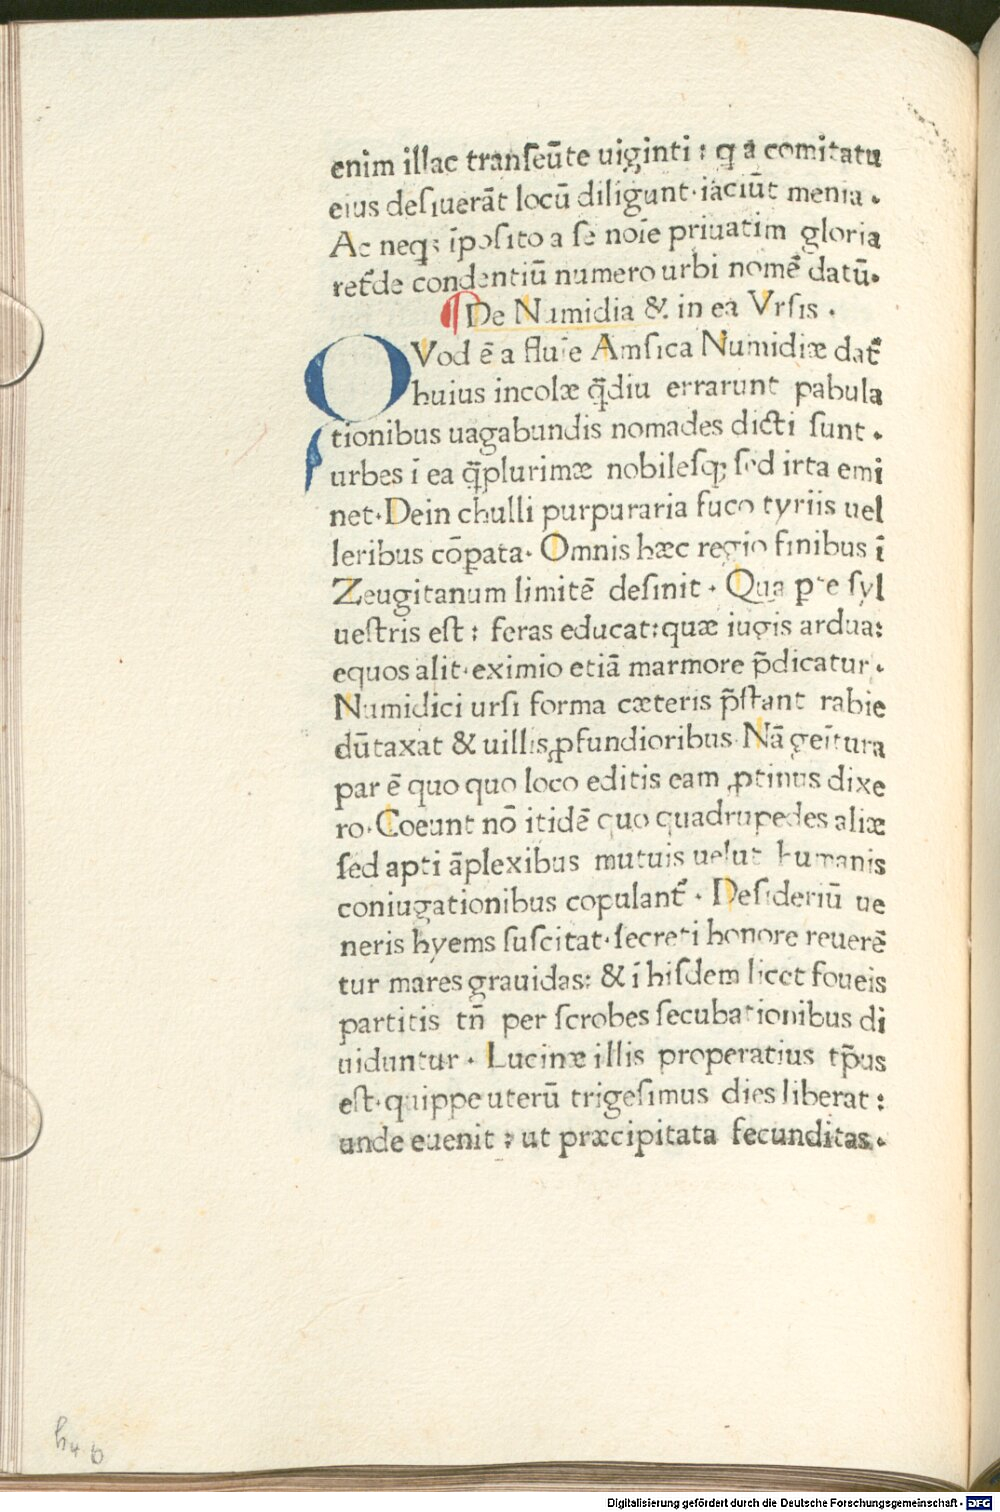 enim illac tranſeūte uiginti : q a comitatu
eius deſiuerāt locū diligunt · iaciūt menia .
Ac neq; īpoſito a ſe noīe priuatim gloria
ret̄de condentiū numero urbi nomē datū.
¶ De Numidia & in ea Vrſis .
QVod ē a fluīe Amſica Numidiæ dat᷑
huius incolæ q̄diu errarunt pabula
tionibus uagabundis nomades dicti ſunt .
urbes ī ea q̄plurimæ nobileſq; ſed irta emi
net · Dein chulli purpuraria fuco tyriis uel
leribus cōꝑata · Omnis hæc regio finibus ī
Zeugitanum limitē deſinit · Qua ꝑte ſyl
ueſtris eſt : feras educat : quæ iugis ardua :
equos alit · eximio etiā marmore p̄dicatur .
Numidici urſi forma cæteris p̄ſtant rabie
dūtaxat & uillis ꝓfundioribus · Nā geītura
par ē quo quo loco editis eam ꝓtinus dixe
ro · Coeunt nō itidē quo quadrupedes aliæ
ſed apti āplexibus mutuis uelut humanis
coniugationibus copulant᷑ · Deſideriū ue
neris hyems ſuſcitat · ſecreti honore reuerē
tur mares grauidas : & ī hiſdem licet foueis
partitis tn̄ per ſcrobes ſecubationibus di
uiduntur · Lucinæ illis properatius tp̄us
eſt · quippe uterū trigeſimus dies liberat :
unde euenit : ut præcipitata fecunditas .
h4 b
Digitalisierung gefördert durch die Deutsche Forschungsgemeinschaft - DFG